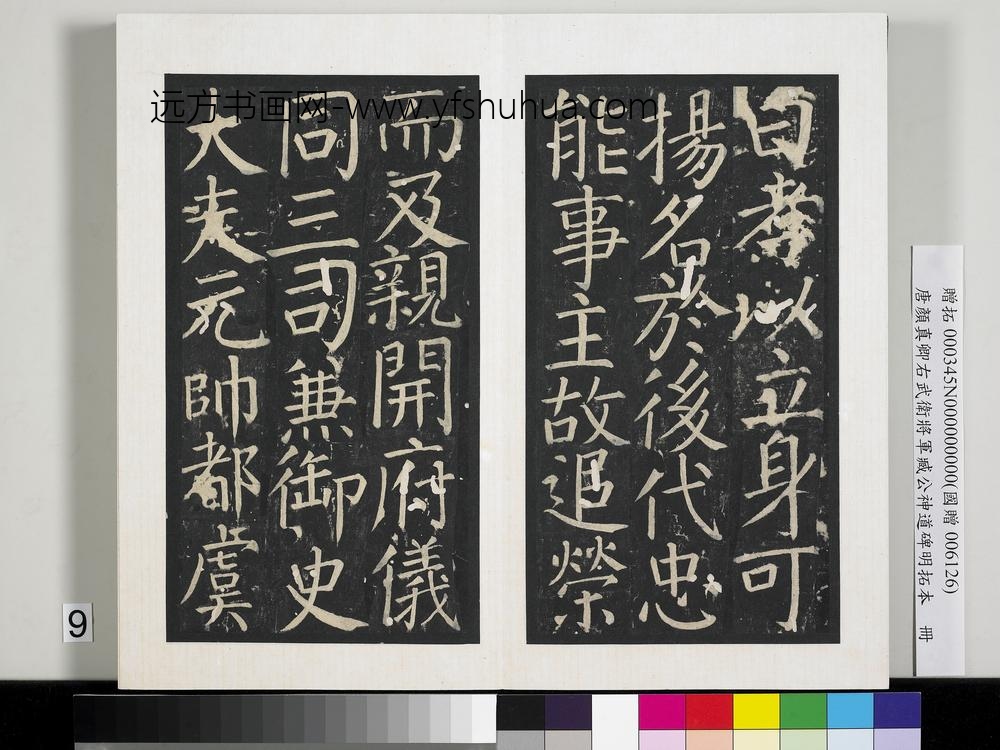 曰孝以立身可
揚名於後代忠
能事主故追榮
而及親開府儀
同三司兼御史
大夫元帥都虞
远方书画网-www.yfshuhua.com
贈拓 000345N000000000(國贈 006126)
唐顏真卿右武衛將軍臧公神道碑明拓本 冊
9